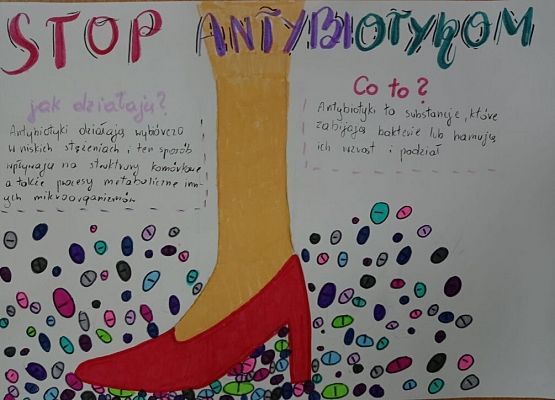 STOP ANTYBIOTYKOM
jak działają?
Antybiotyki działają wybiórczo
w niskich stężeniach i ten sposób
wpływają na struktury komórkowe
a także procesy metaboliczne inn-
ych mikroorganizmów
Co to?
Antybiotyki to substancje, które
zabijają bakterie lub hamują
ich wzrost i podział